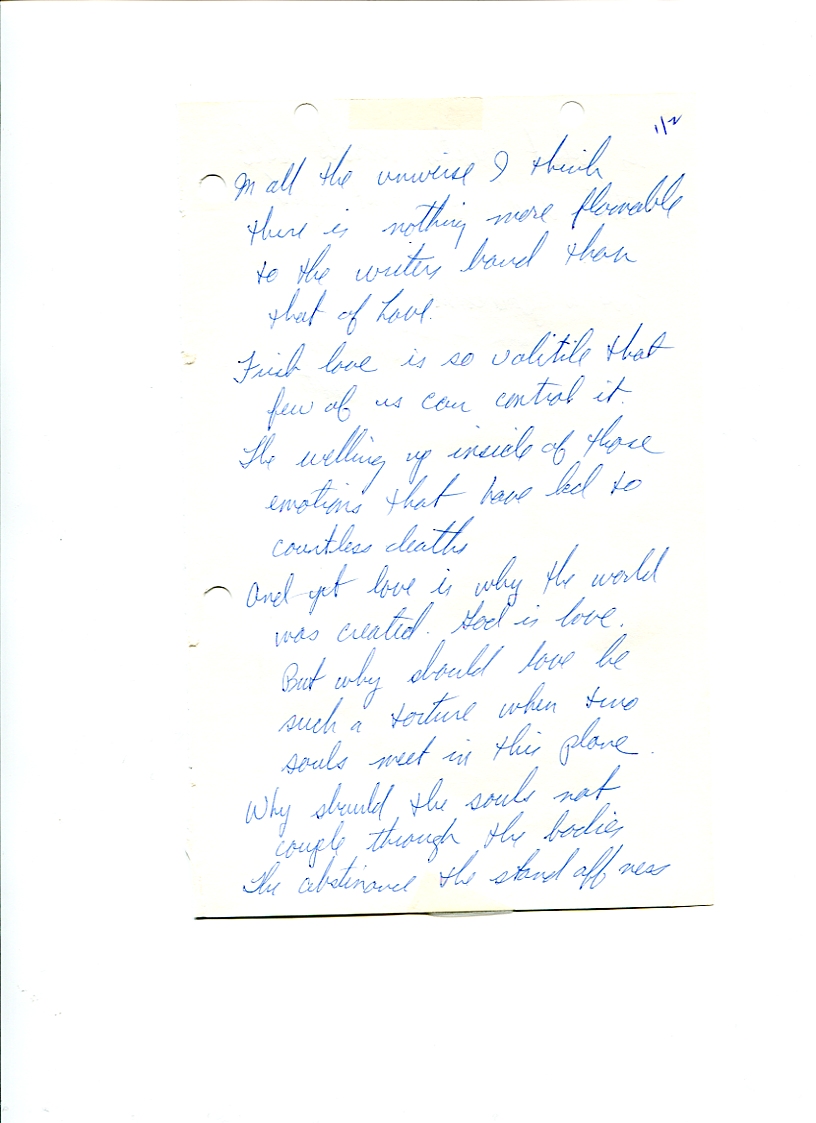 1/2
In all the universe I think
there is nothing more flowable
to the writers hand than
that of Love.
First love is so volitile that
few of us can control it.
The welling up inside of those
emotions that have led to
countless deaths
And yet love is why the world
was created. God is love.
But why should love be
such a torture when two
souls meet in this plane.
Why should the souls not
couple through the bodies
The abstinance the stand off ness